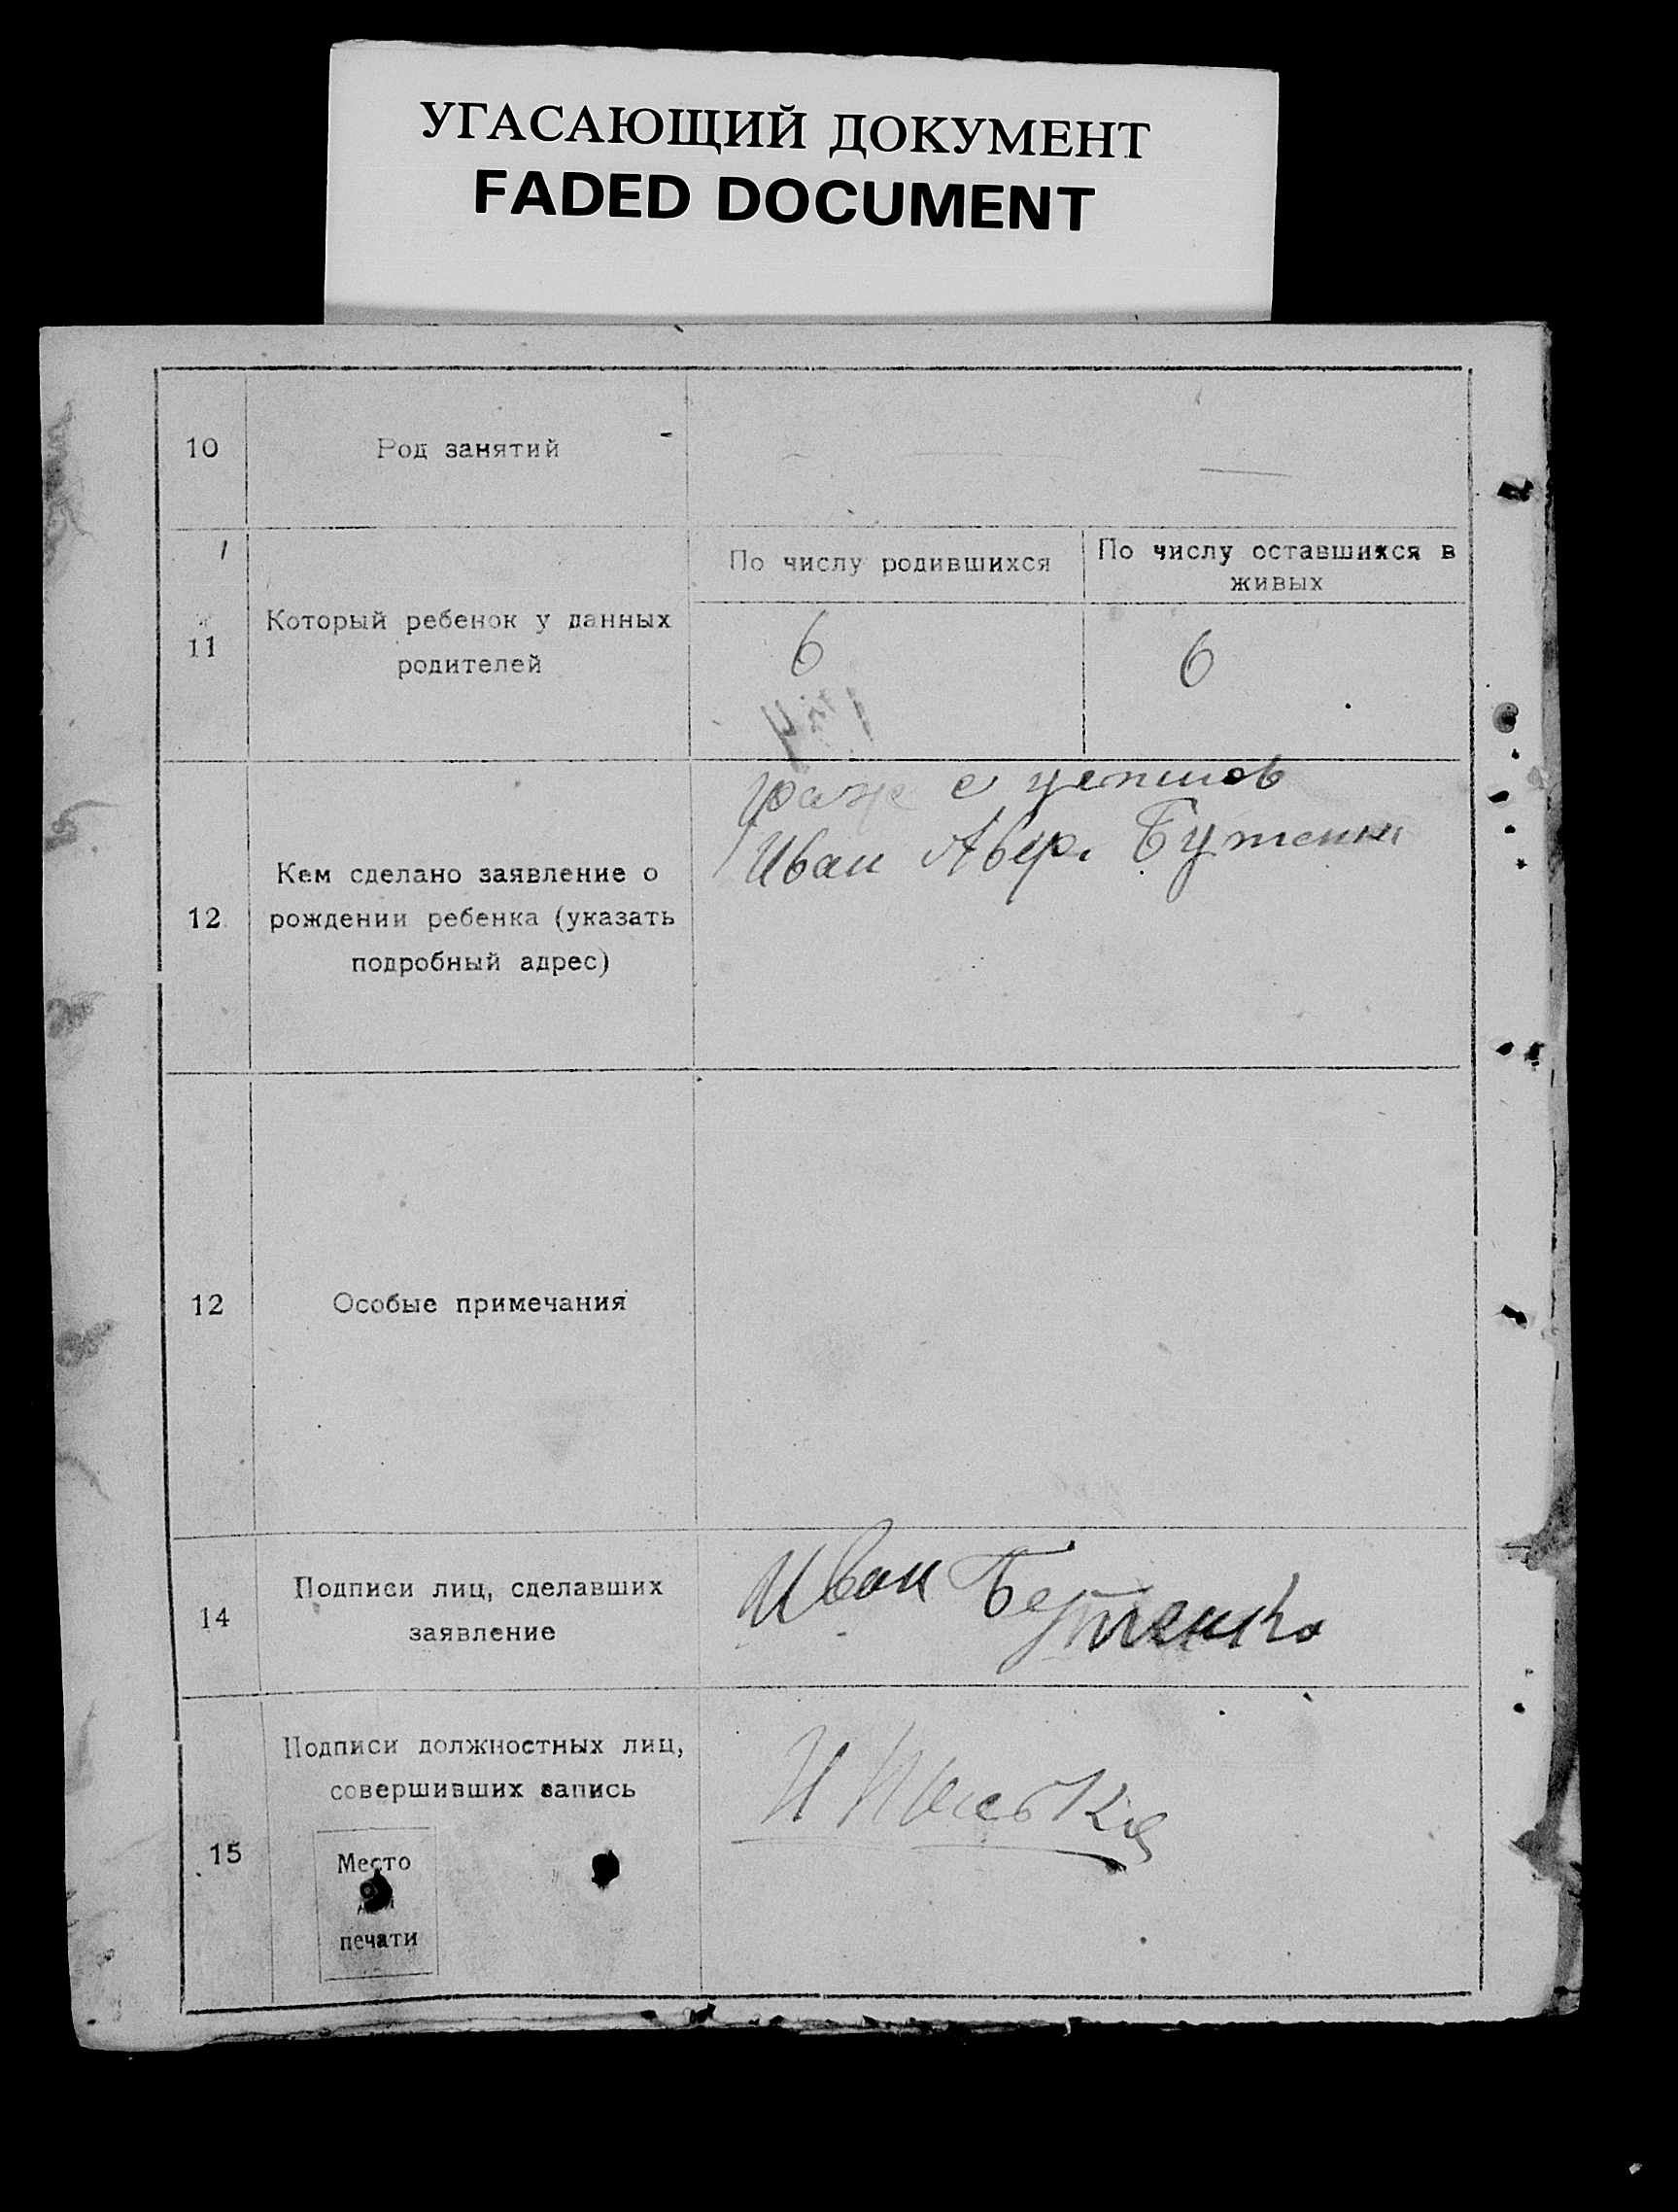 УГАСАЮЩИЙ ДОКУМЕНТ
FADED DOCUMENT
10
Род занятий
11
Который ребенок у данных
родителей
По числу родившихся
По числу оставшихся в
живых
6
6
12
Кем сделано заявление о
рождении ребенка (указать
подробный адрес)
Иван Авер.
12
Особые примечания
14
Подписи лиц, сделавших
заявление
Иван Бутенко
15
Подписи должностных лиц,
совершивших запись
Место
печати